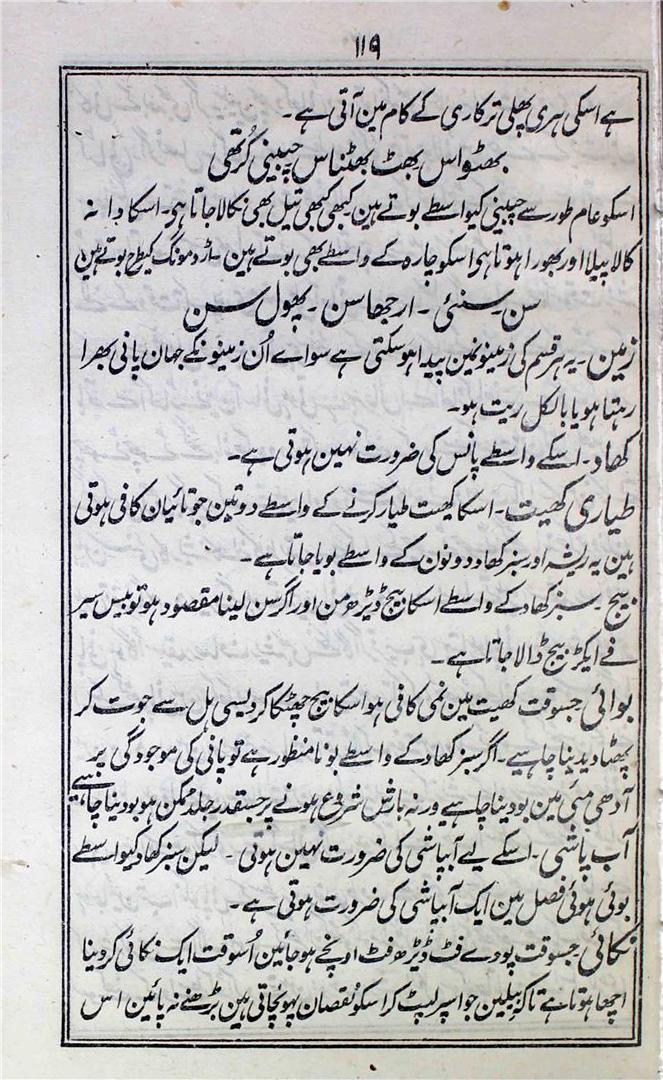 ۱۱۹
ہے اسکی ہری پھلی ترکاری کے کام مین آتی ہے۔
بھٹواس بھٹ بھٹناس چیبنی کُرتھی
اسکو عام طور سے چیبنی کیواسطے بوتے ہین کبھی کبھی تیل بھی نکالا جاتا ہی۔ اسکا دا نہ
کالا پیلا اور بھورا ہوتا ہی اسکو چارہ کے واسطے بھی بوتے ہین۔ اڑد مونگ کیطرح بوتے ہین
سن سنئی۔ ارجھاسن۔ پھول سن
زمین۔ یہ ہر قسم کی زمینونمین پیدا ہو سکتی ہے سواے اُن زمینونکے جہان پانی بھرا
رہتا ہو یا بالکل ریت ہو۔
کھاد۔ اسکے واسطے پانس کی ضرورت نہین ہوتی ہے۔
طیاری کھیت۔ اسکا کھیت طیار کرنے کے واسطے دو تین جوتائیان کافی ہوتی
ہین یہ ریشہ اور سبز کھاد دونون کے واسطے بویا جاتا ہے۔
بیج۔ سبز کھاد کے واسطے اسکا بیج ڈیڑھ من اور اگر سن لینا مقصود ہو تو بیس سیر
فے ایکڑ بیج ڈالا جاتا ہے۔
بوائی جسوقت کھیت مین نمی کافی ہو اسکا بیج چھٹکا کر دیسی ہل سے جوت کر
پھٹا دیدینا چاہیے۔ اگر سبز کھاد کے واسطے بونا منظور ہے تو پانی کی موجودگی پر
آدھی مئی مین بودینا چاہیے ورنہ بارش شروع ہونے پر جسقدر جلد ممکن ہو بودینا چاہیے
آب پاشی۔ اسکے لیے آبپاشی کی ضرورت نہین ہوتی۔ لیکن سبز کھاد کیواسطے
بوئی ہوئی فصل مین ایک آبپاشی کی ضرورت ہوتی ہے۔
نکائی جسوقت پودے فٹ ڈیڑھ فٹ اونچے ہو جائین اُسوقت ایک نکائی کر دینا
اچھا ہوتا ہے تاکہ بیلین جو اسپر لپٹ کر اسکو نقصان پہونچاتی ہین بڑھنے نہ پائین اس